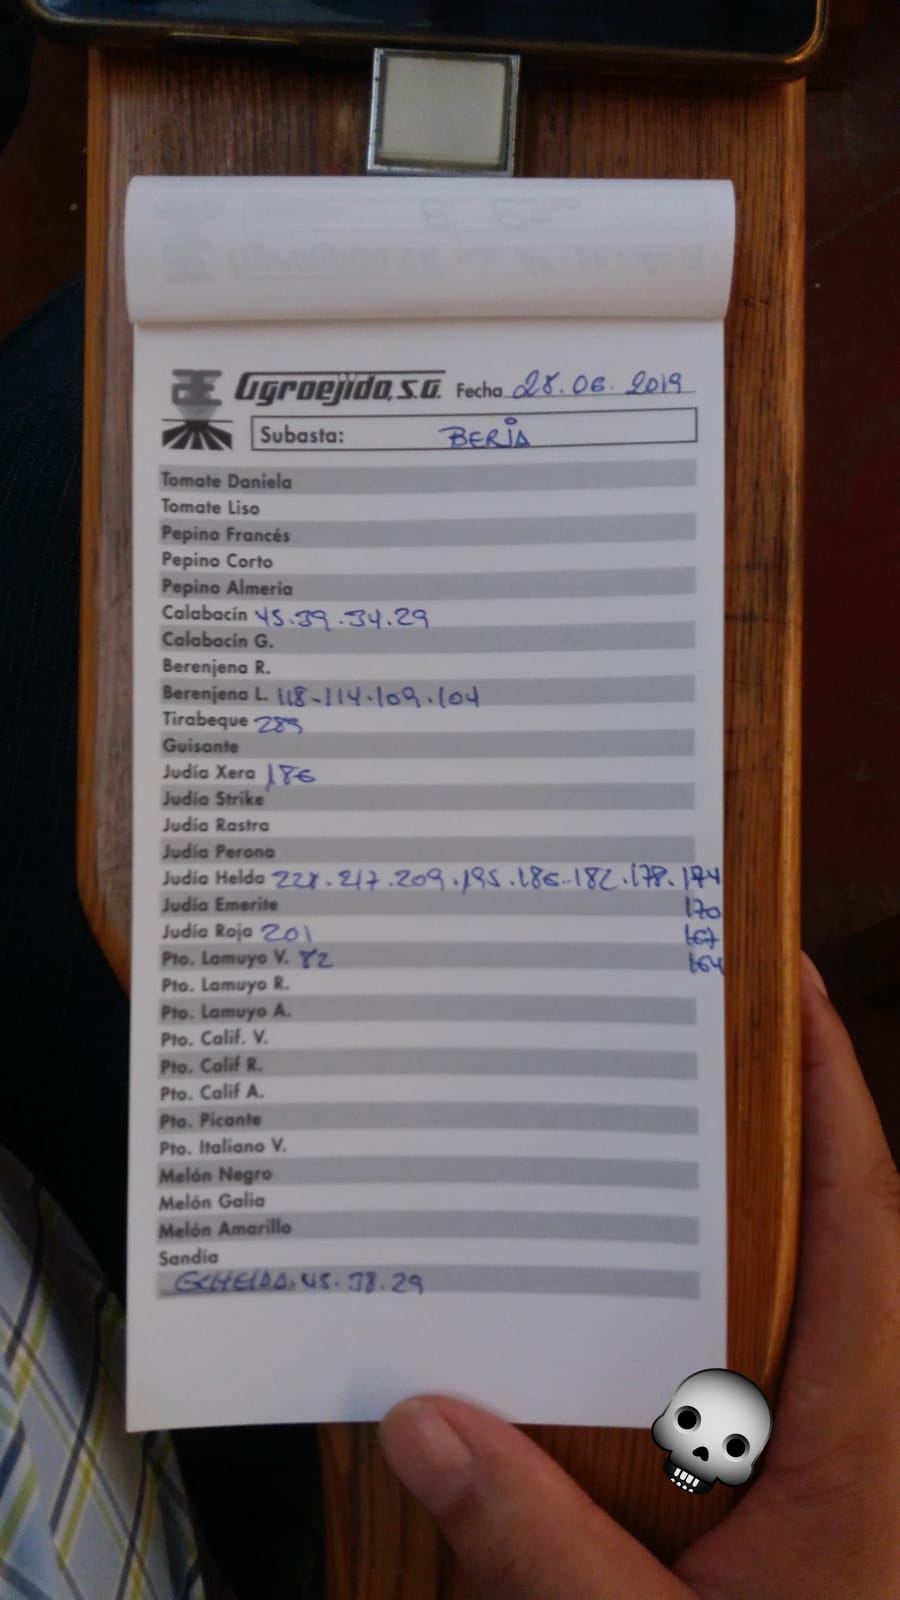 Agroejido, S.A. Fecha 28.06.2019
Subasta: BERJA
Tomate Daniela
Tomate Liso
Pepino Francés
Pepino Corto
Pepino Almería
Calabacín 45.39.34.29
Calabacín G.
Berenjena R.
Berenjena L. 118-114.109.104
Tirabeque 289
Guisante
Judía Xera 186
Judía Strike
Judía Rastra
Judía Perona
Judía Helda 228.217.209.195.186.182.178.174
Judía Emerite 170
Judía Roja 201 167
Pto. Lamuyo V. 82 164
Pto. Lamuyo R.
Pto. Lamuyo A.
Pto. Calif. V.
Pto. Calif R.
Pto. Calif A.
Pto. Picante
Pto. Italiano V.
Melón Negro
Melón Galia
Melón Amarillo
Sandía
45.38.29